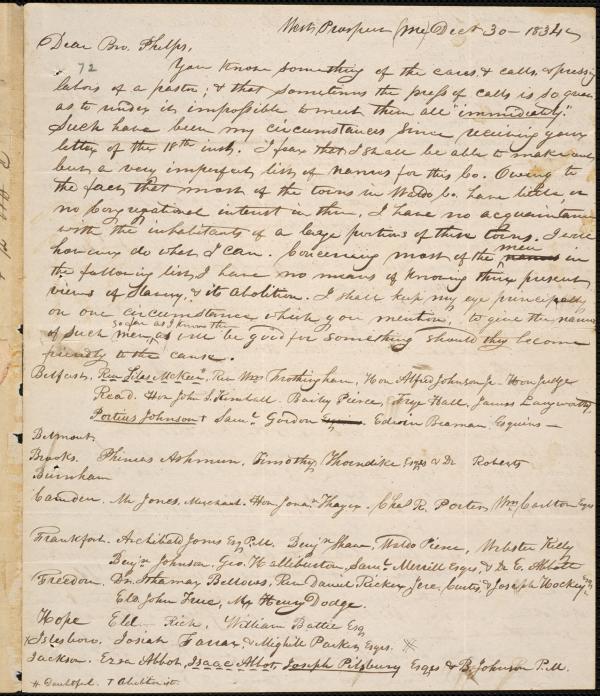 West Prospect (Me) Dect 30 - 1834
Dear Bro. Phelps,
72
You know something of the cares & calls & pressing
labors of a pastor; & that sometimes the press of calls is so great
as to render it impossible to meet them all "immediately."
Such have been my circumstances since receiving your
letter of the 18th inst. I fear that I shall be able to make out
but a very imperfect list of names for this Co. Owing to
the fact that most of the towns in Waldo Co. have little or
no Congregational interest in them, I have no acquaintance
with the inhabitants of a large portion of these towns. I will
however do what I can. Concerning most of the men in
the following list, I have no means of knowing their present
views of Slavery, & its Abolition. I shall keep my eye principally
on one circumstance which you mention, to give the names
so far as I know them
of such men, as will be good for something should they become
friendly to the cause.
Belfast, Rev. Silas McKeen, Rev Wm Frothingham, Hon Alfred Johnson Jr. Hon Judge
Read. Hon John S. Kimball. Baily Pierce, Frye Hall, James Langworthy
Portius Johnson & Saml. Gordon Edwin Beaman Esquires -
Belmont,
Brooks. Phineas Ashmun, Timothy Thorndike Esqrs & Dr Roberts
Burnham
Camden. Mr Jones, Merchant. Hon Jonan Thayer. Chas R. Porter, Wm Carlton Esqrs
Frankfort. Archibald Jones Esq P.M. Benjn Shaw, Waldo Pierce, Webster Kelly
Benjn Johnson. Geo. Halliburton, Saml. Merrill Esqrs, & Dr E. Abbott
Freedom. Dr. Ithamar Bellows, Rev. Daniel Ricker Jere. Curtis, & Joseph Hockey
Eld. John True, Mr Henry Dodge.
Hope Eld Rich. William Battie Esq
Islesboro. Josiah Farrar, & Mighill Parker Esqrs.
Jackson. Ezra Abbot, Isaac Abbot, Joseph Pilsbury Esqrs & B. Johnson P.M.
Doubtful. † Abolitionist